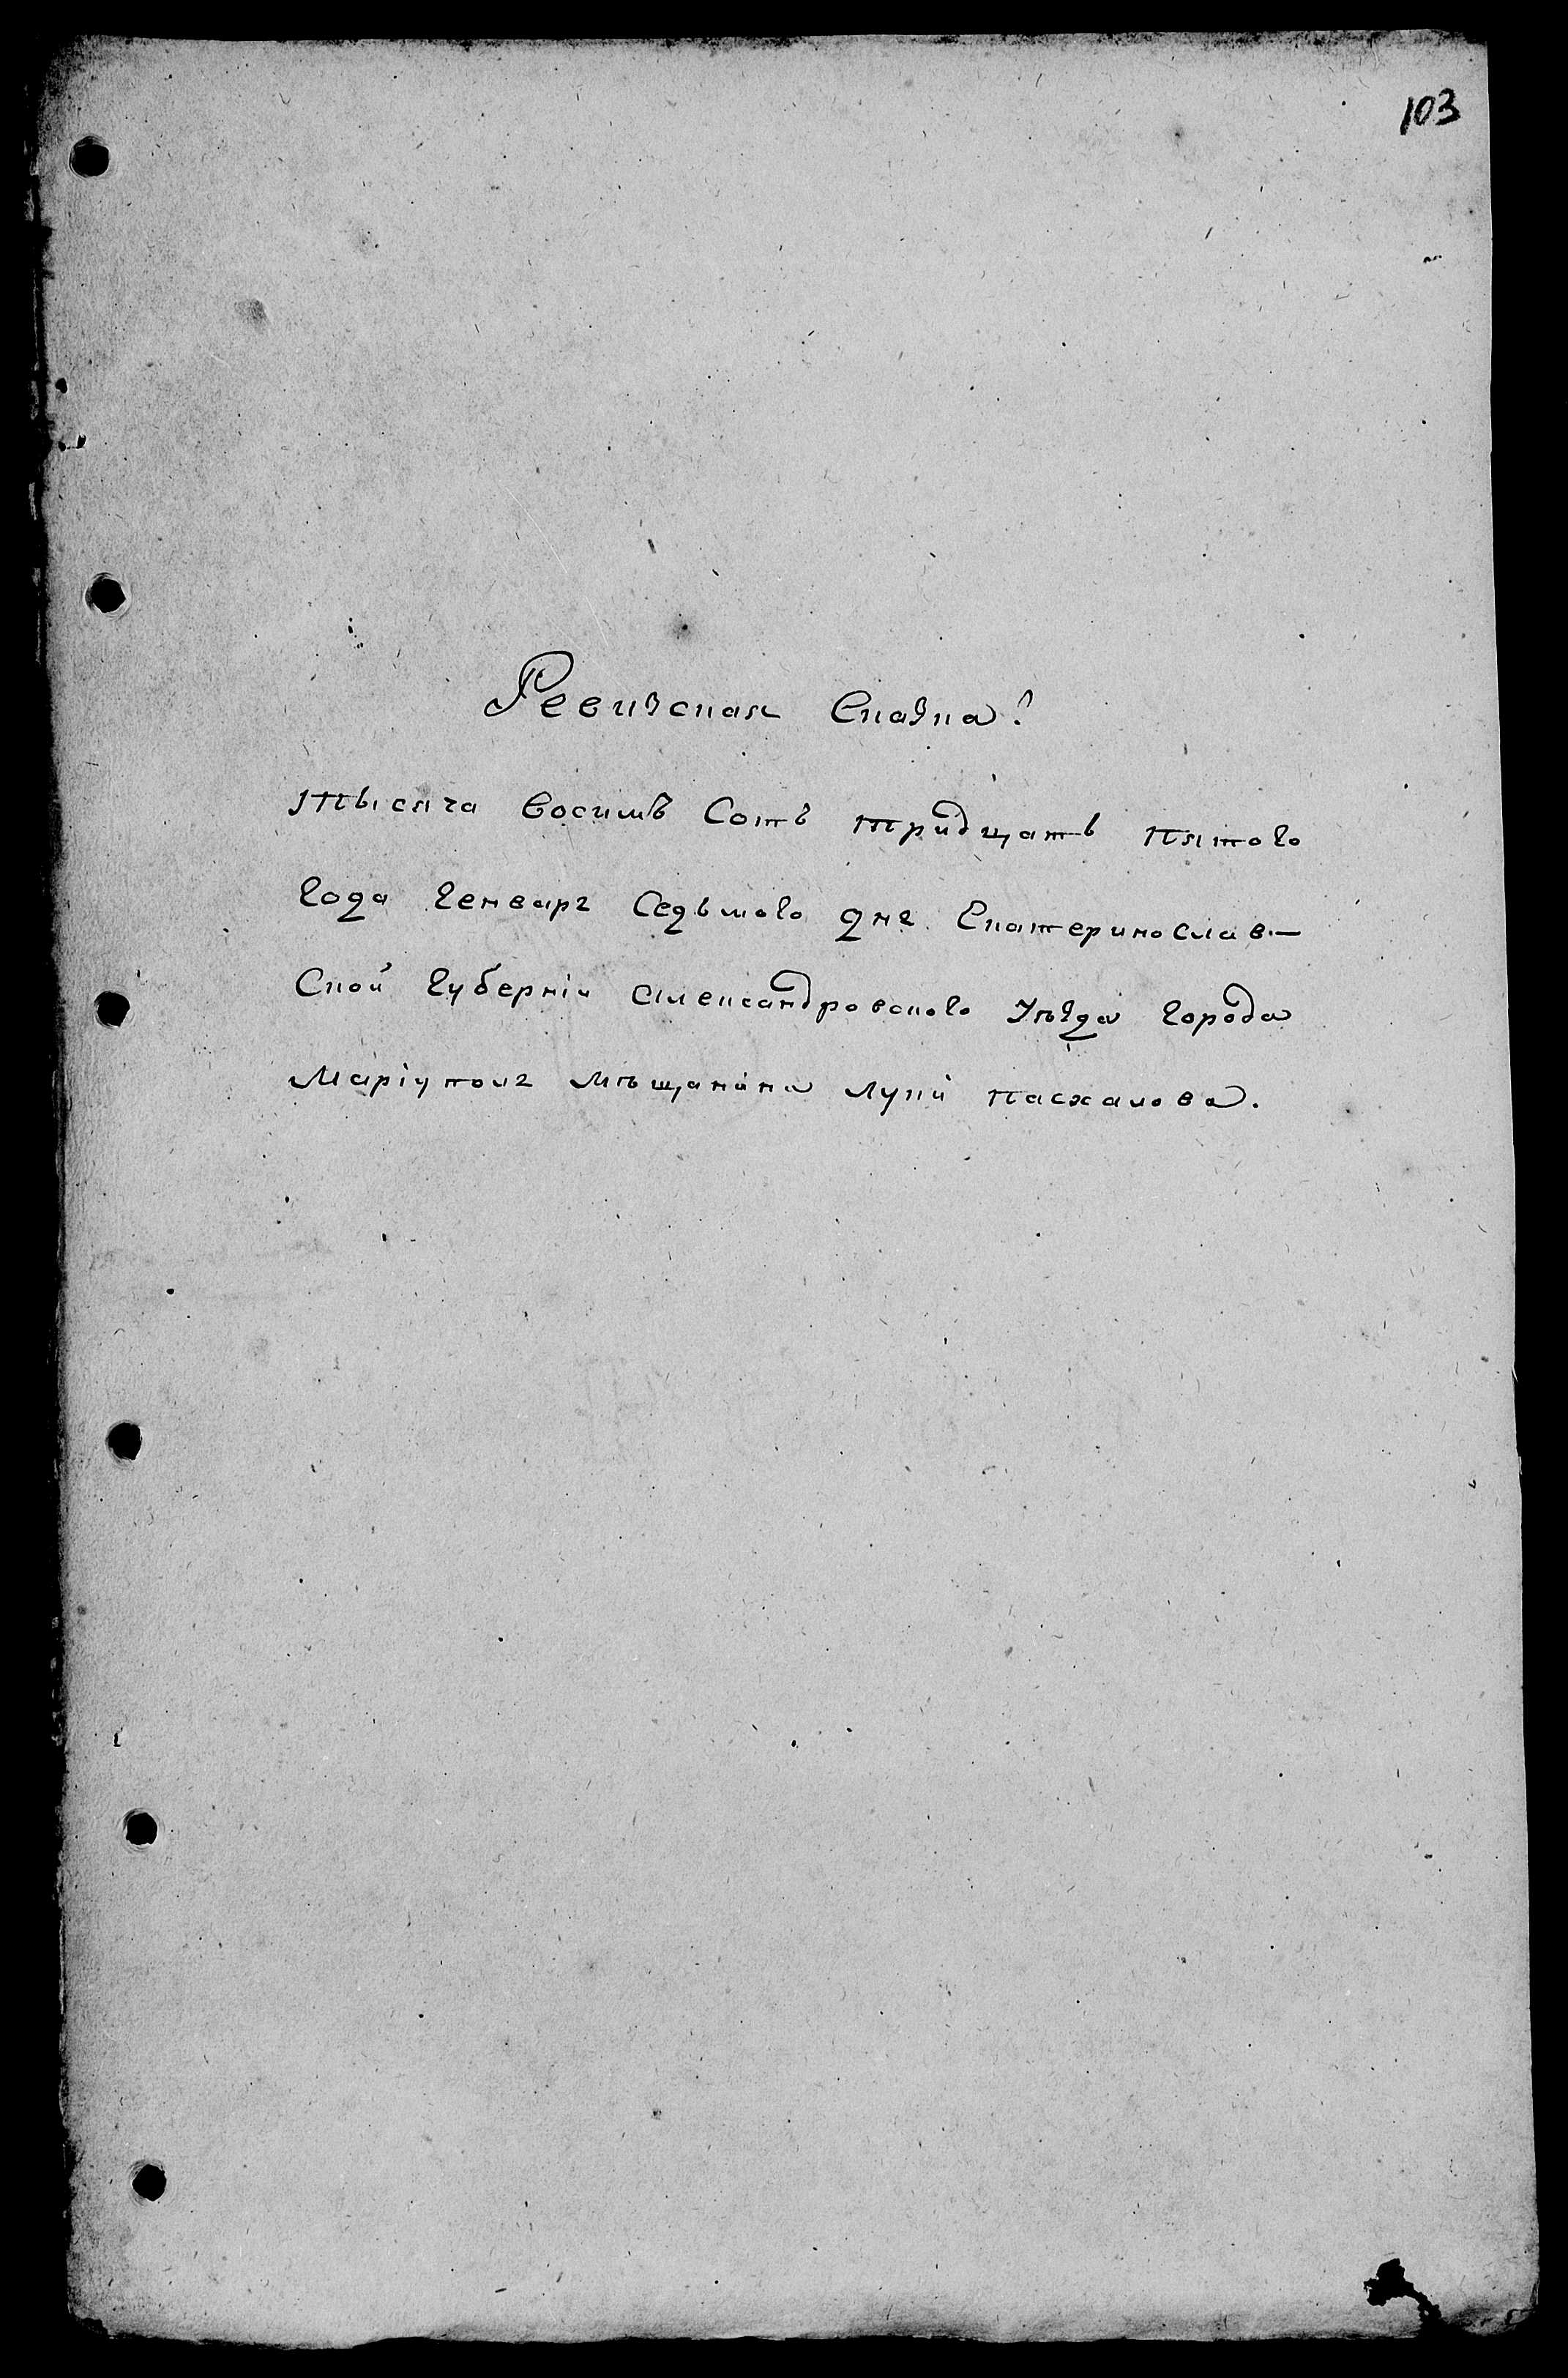 103
Ревизская Сказка:
тысяча восимъ Сотъ тридцать пятого
года генваря Седьмого дня Екатеринослав-
Ской губерніи Александровского Уѣзда города
Маріуполя мѣщанина Луки пасхалова.